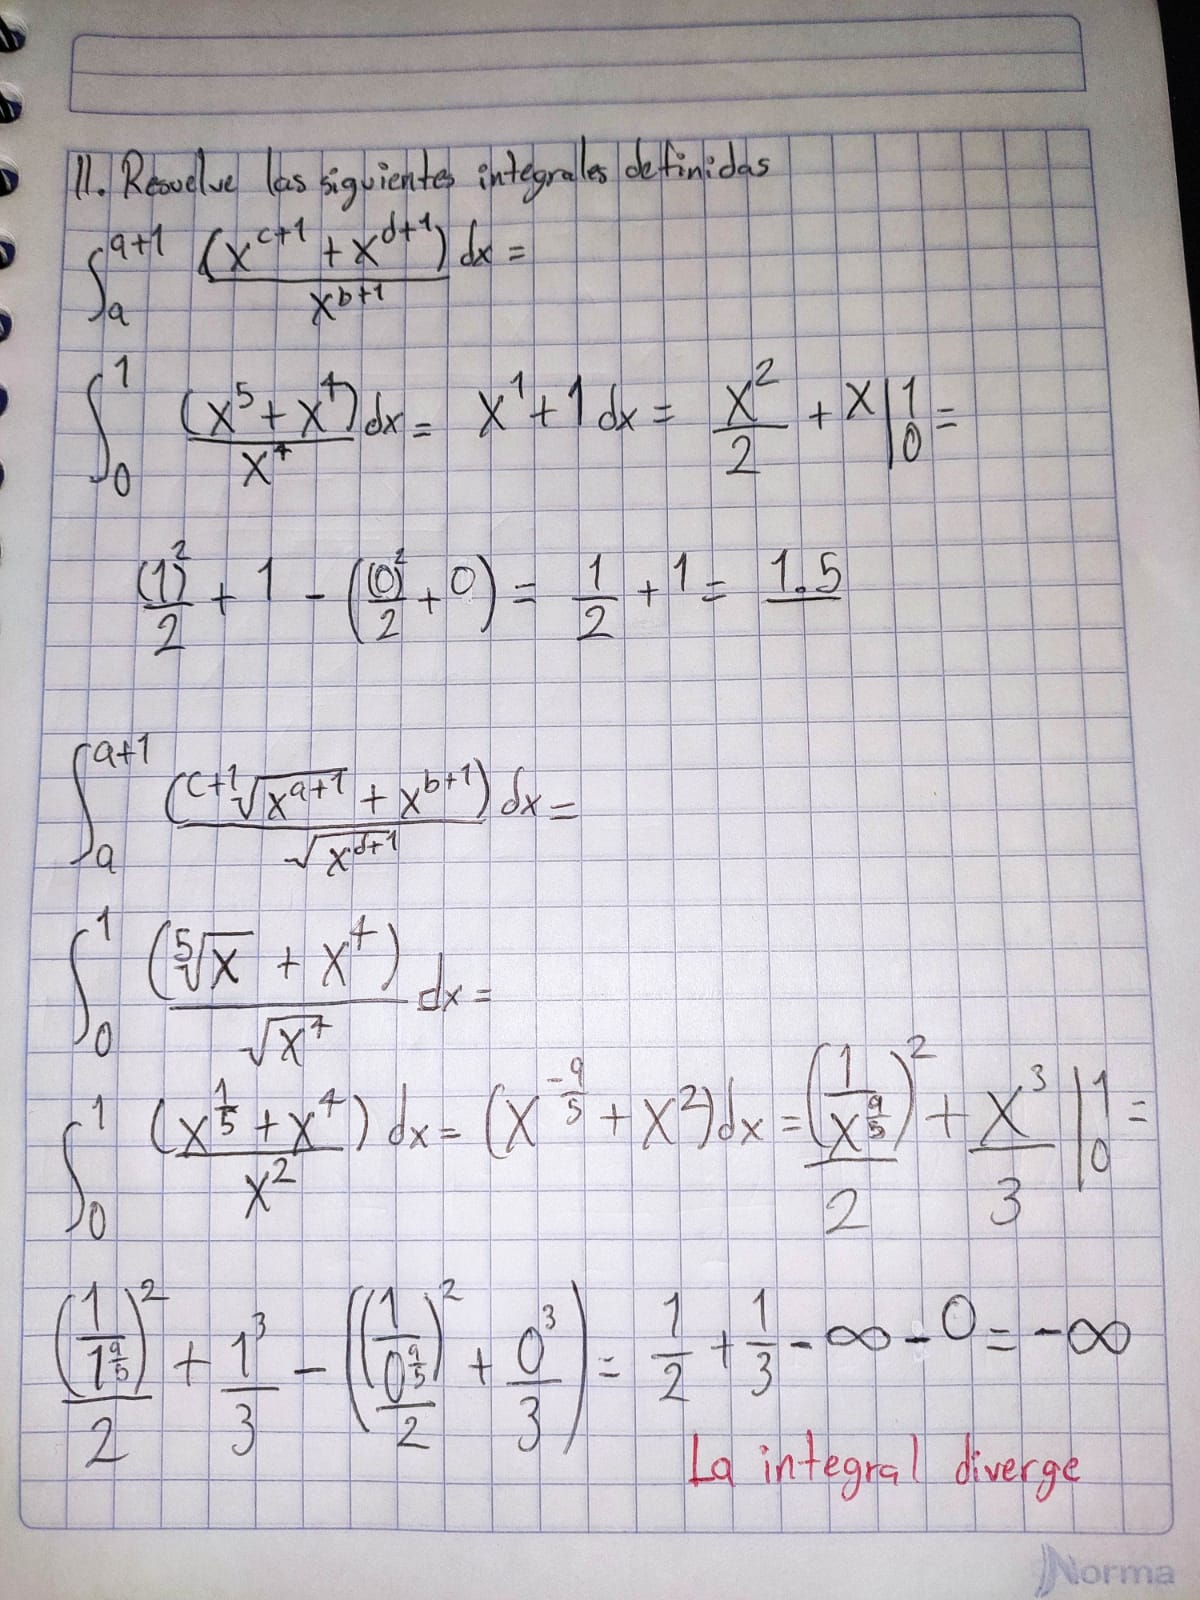 II. Resuelve las siguientes integrales definidas
∫_a^{a+1} (x^{c+1} + x^{d+1}) / x^{b+1} dx =
∫_0^1 (x^5 + x^4) / x^4 dx = x^1 + 1 dx = x^2/2 + x |_0^1 =
(1)^2/2 + 1 - ((0)^2/2 + 0) = 1/2 + 1 = 1.5
∫_a^{a+1} (^{c+1}√(x^{a+1}) + x^{b+1}) / √(x^{d+1}) dx =
∫_0^1 (⁵√x + x^4) / √(x^4) dx =
∫_0^1 (x^{1/5} + x^4 / x^2) dx = (x^{-9/5} + x^2) dx = (1/x^{9/5})^2 / 2 + x^3/3 |_0^1 =
(1/1^{9/5})^2 / 2 + 1^3/3 - ((1/0^{9/5})^2 / 2 + 0^3/3) = 1/2 + 1/3 - ∞ - 0 = -∞
La integral diverge
Norma